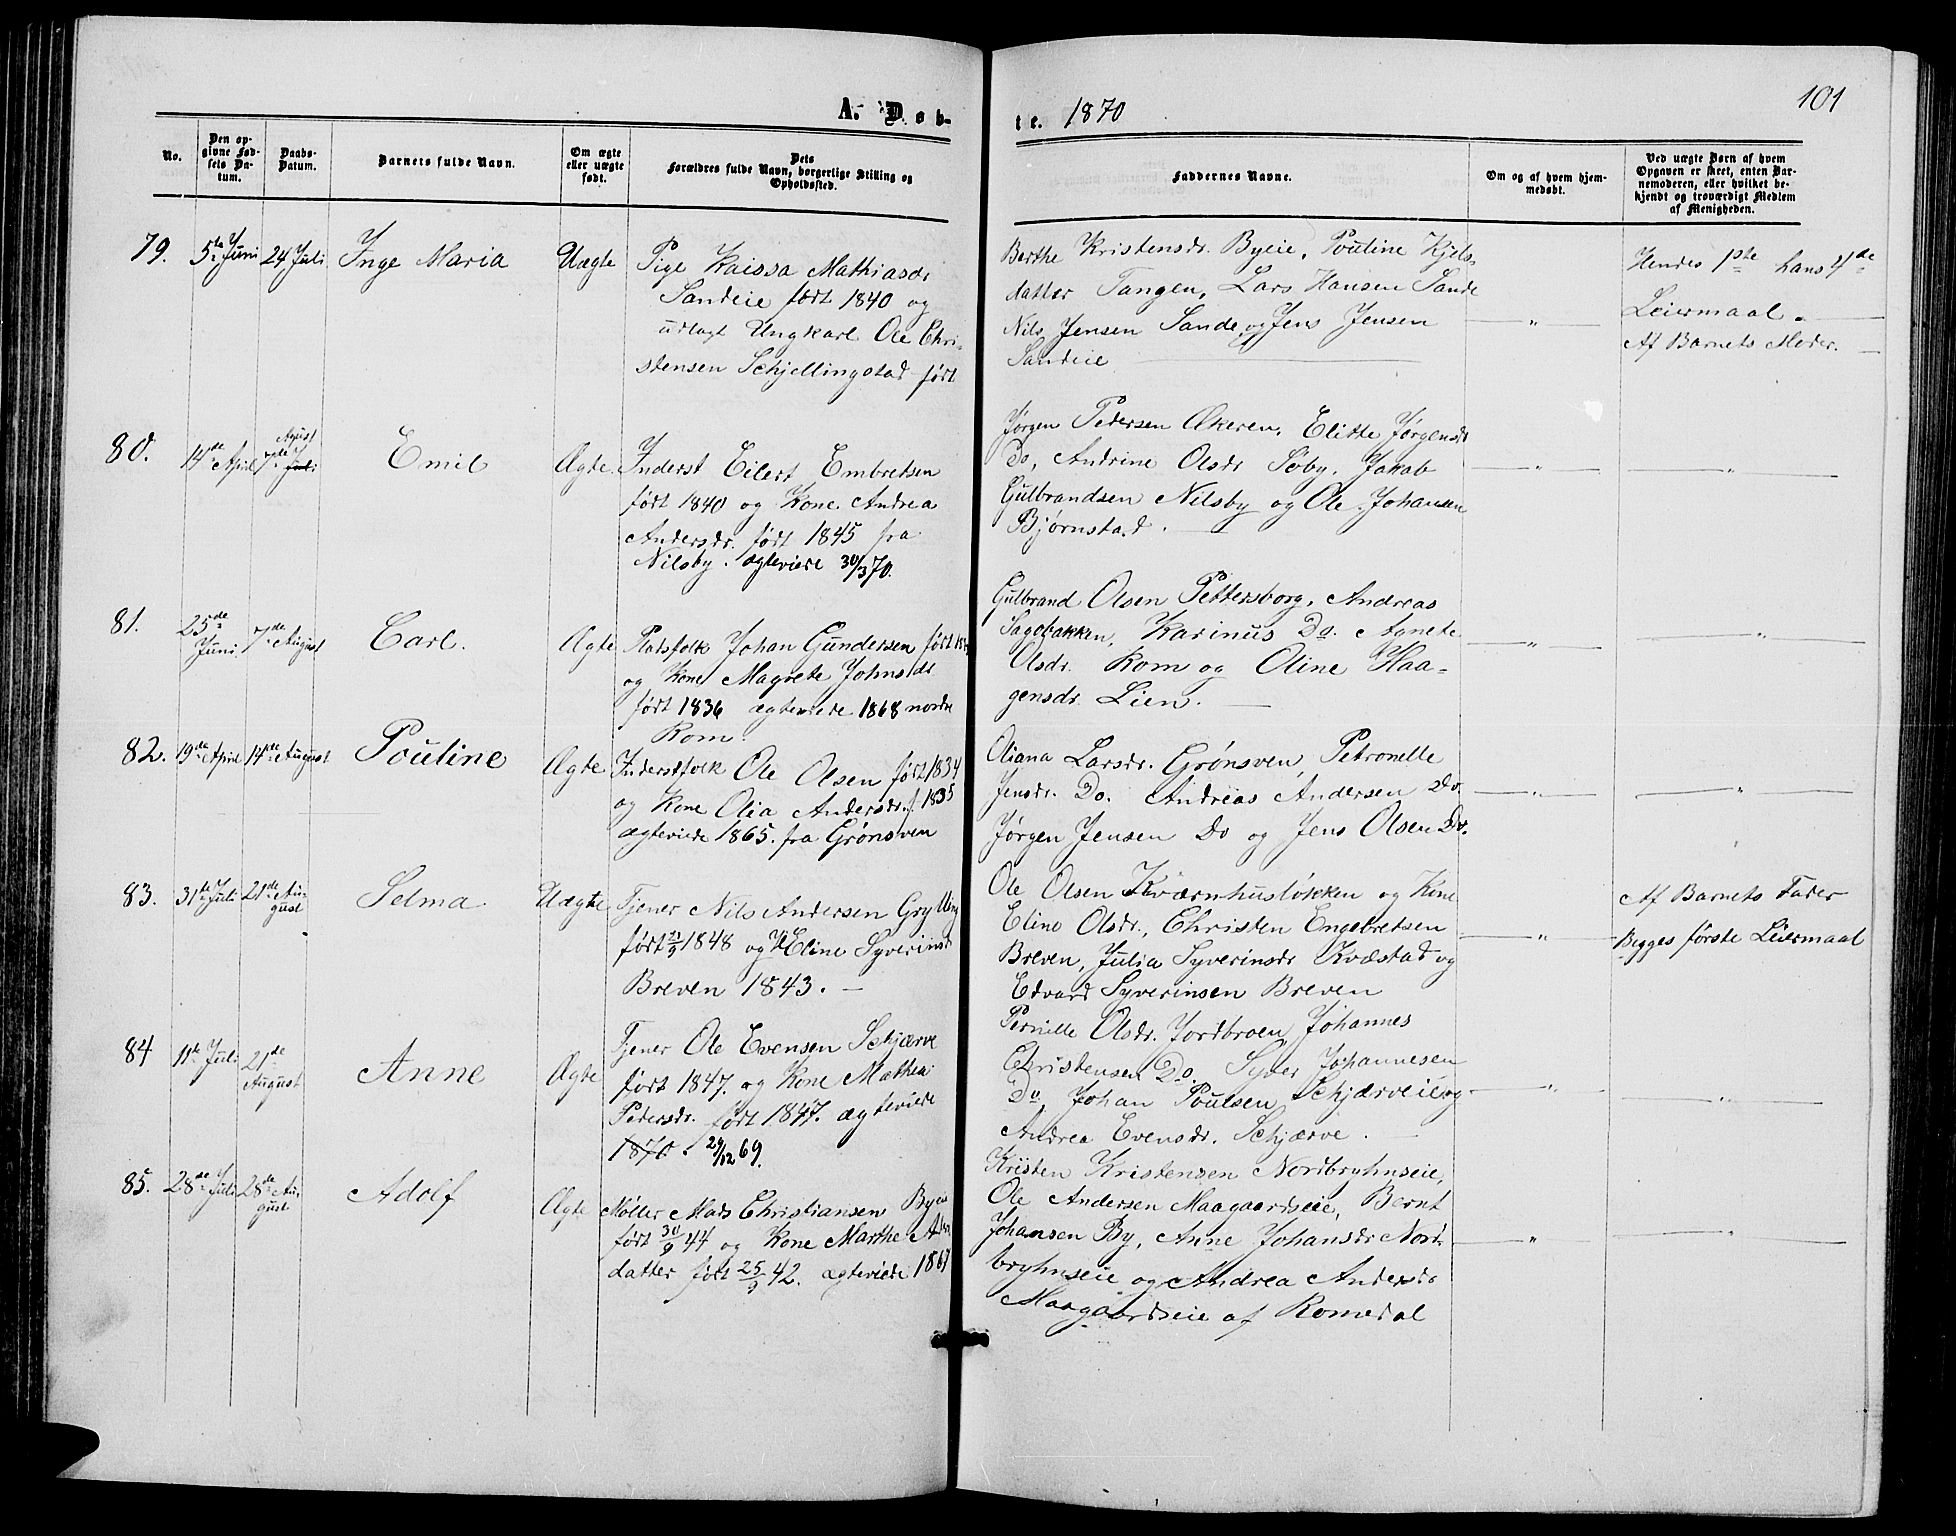 101
A. Døb-
te. 1870
No.
Den op-
givne Fød-
sels Da-
tum.
Daabs-
Datum.
Barnets fulde Navn.
Om ægte
eller uægte
født.
Dets
Forældres fulde Navn, borgerlige Stilling og
Opholdssted.
Faddernes Navne.
Om og af hvem hjem-
medøbt.
Ved uægte Børn af hvem
Opgaven er skeet, enten Bar-
nemoderen, eller hvilket be-
kjendt og troværdigt Medlem
af Menigheden.
79.
5te Juni
24 Juli
Inge Maria
Uægte
Pige Kaissa Mathiasdr
Sandeie født 1840 og
udlagt Ungkarl Ole Chri-
stensen Schjellingstad født
Berthe Kristensdr. Byeie, Pouline Kjels-
datter Tangen, Lars Hansen Sande
Nils Jensen Sande, og Jens Jensen
Sandeie
— " —
Hendes 1ste hans 4de
Leiermaal.
Af Barnets Moder.
80.
14de April
August
7de Juli
Emil
Ægte
Inderst Eilert Embretsen
født 1840 og Kone Andrea
Andersdr. født 1845 fra
Nilsby. ægteviede 30/3 70.
Jørgen Pedersen Økeren, Elitte Jørgensdr
Do, Andrine Olsdr Søby, Jakob
Gulbrandsen Nilsby og Ole Johansen
Bjørnstad.
— " —
— " —
81.
25de
Juni
7de August
Carl.
Ægte
Pladsfolk Johan Gundersen født
og Kone Magrete Johnsdr
født 1836 ægteviede 1868 nordre
Rom.
Gulbrand Olsen Pettersborg, Andreas
Sagbakken, Karinus Do. Agnete
Olsdr. Rom og Oline Haa-
gensdr. Lien.
— " —
— " —
82.
19de April
14de August
Pouline
Ægte
Inderstfolk Ole Olsen født 1834
og Kone Olia Andersdr. f. 1835
ægteviede 1865. fra Grønsven
Oliana Larsdr. Grønsven, Petronelle
Jensdr. Do. Andreas Andersen Do.
Jørgen Jensen Do og Jens Olsen Do.
— " —
— " —
83.
31te Juli
21de Au-
gust
Selma
Uægte
Tjener Nils Andersen Grylling
født 21/9 1848 og Eline Syverinsdr
Breven 1843. —
Ole Olsen Kværnhusløkken og Kone
Eline Olsdr., Christen Engebretsen
Breven, Julia Syverinsdr Kvæstad og
Edvard Syverinsen Breven
— " —
Af Barnets Fader
Begges første Leiermaal
84
11te Juli
21de
August
Anne
Ægte
Tjener Ole Evensen Schjærve
født 1847. og Kone Mathea
Pedersdr. født 1847. ægteviede
1870. 29/12 69.
Pernille Olsdr. Jordbroen, Johannes
Christensen Do. Syver Johannesen
Do, Johan Poulsen Schjærveie og
Andrea Evensdr. Schjærve.
— " —
— " —
85.
28de Juli
28de Au-
gust
Adolf
Ægte
Møller Mads Christiansen Byeie
født 30/9 44 og Kone Marthe
datter født 25/9 42. ægteviede 1867
Kristen Kristensen Nordbryhnseie,
Ole Andersen Maagaardseie, Bernt
Johansen By, Anne Johansdr Nord-
bryhnseie og Andrea Andersdr
Maagaardseie af Romedal
— " —
— " —